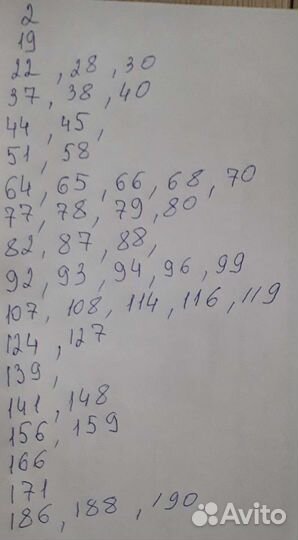 2
19
22, 28, 30
37, 38, 40
44, 45,
51, 58
64, 65, 66, 68, 70
77, 78, 79, 80
82, 87, 88,
92, 93, 94, 96, 99
107, 108, 114, 116, 119
124, 127
139,
141, 148
156, 159
166
171
186, 188, 190
Avito